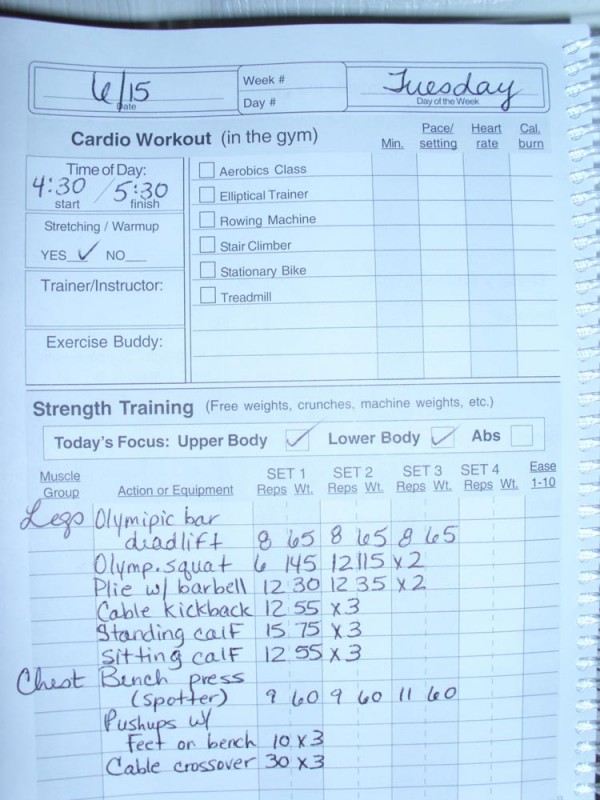 6/15 Week # Tuesday
Date Day # Day of the Week
Cardio Workout (in the gym) Min. Pace/ setting Heart rate Cal. burn
Time of Day:
4:30 / 5:30
start finish
Stretching / Warmup
YES ✓ NO
Trainer/Instructor:
Exercise Buddy:
Aerobics Class
Elliptical Trainer
Rowing Machine
Stair Climber
Stationary Bike
Treadmill
Strength Training (Free weights, crunches, machine weights, etc.)
Today's Focus: Upper Body ✓ Lower Body ✓ Abs
Muscle Group Action or Equipment SET 1 Reps Wt. SET 2 Reps Wt. SET 3 Reps Wt. SET 4 Reps Wt. Ease 1-10
Legs Olymipic bar
deadlift 8 65 8 65 8 65
Olymp. squat 6 145 12 115 x 2
Plie w/ barbell 12 30 12 35 x 2
Cable kickback 12 55 x 3
Standing calf 15 75 x 3
Sitting calf 12 55 x 3
Chest Bench press
(spotter) 9 60 9 60 11 60
Pushups w/
feet on bench 10 x 3
Cable crossover 30 x 3